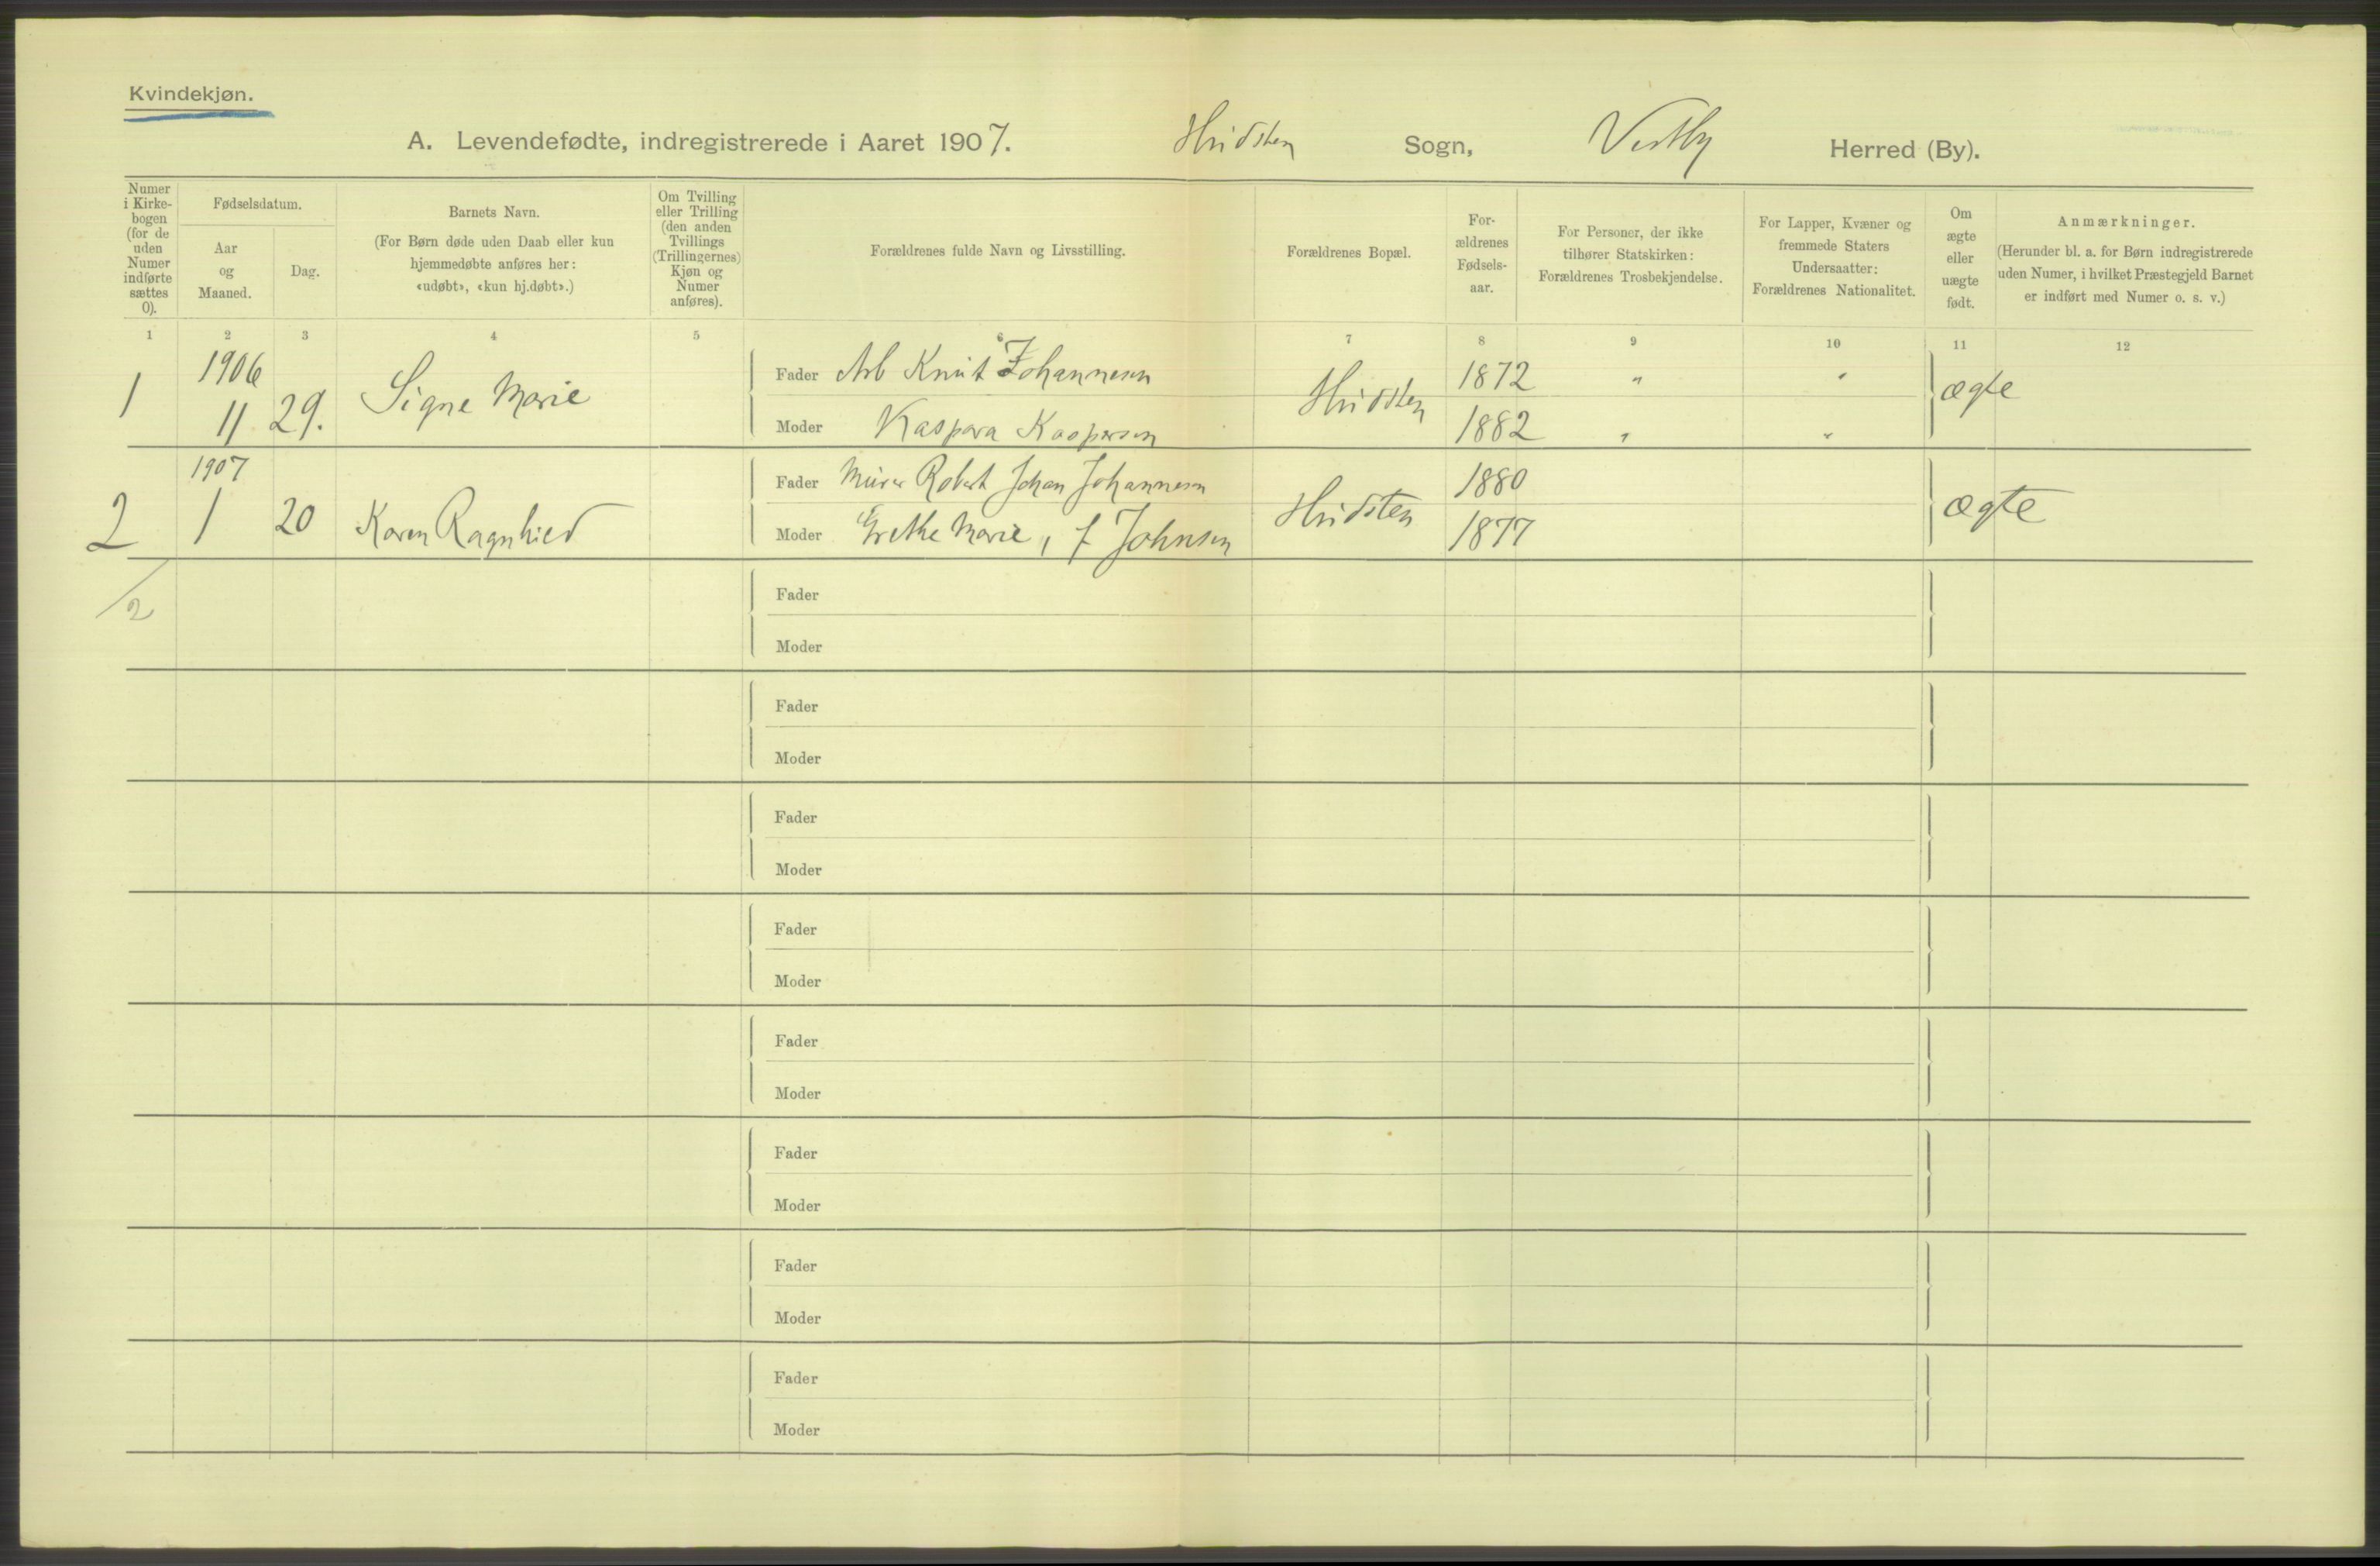 Kvindekjøn.
A. Levendefødte, indregistrerede i Aaret 1907. Hvidsten Sogn, Vestby Herred (By).
Numer i Kirkebogen (for de uden Numer indførte sættes 0).
Fødselsdatum.
Aar og Maaned.
Dag.
Barnets Navn.
(For Børn døde uden Daab eller kun hjemmedøbte anføres her: «udøbt», «kun hj.døbt».)
Om Tvilling eller Trilling (den anden Tvillings (Trillingernes) Kjøn og Numer anføres).
Forældrenes fulde Navn og Livsstilling.
Forældrenes Bopæl.
Forældrenes Fødselsaar.
For Personer, der ikke tilhører Statskirken: Forældrenes Trosbekjendelse.
For Lapper, Kvæner og fremmede Staters Undersaatter: Forældrenes Nationalitet.
Om ægte eller uægte født.
Anmærkninger.
(Herunder bl. a. for Børn indregistrerede uden Numer, i hvilket Præstegjeld Barnet er indført med Numer o. s. v.)
1 2 3 4 5 6 7 8 9 10 11 12
1 1906 11 29. Signe Marie Fader Arb Knut Johannesen Hvidsten 1872 " " ægte
Moder Kaspara Kaspersen 1882 " "
2 1907 1 20 Karen Ragnhild Fader Murer Robert Johan Johannesen Hvidsten 1880 ægte
Moder Grethe Marie, f Johnsen 1877
/2
Fader
Moder
Fader
Moder
Fader
Moder
Fader
Moder
Fader
Moder
Fader
Moder
Fader
Moder
Fader
Moder